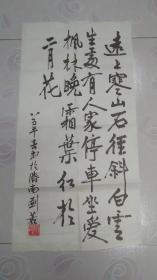 遠上寒山石徑斜白雲
生處有人家停車坐愛
楓林晚霜葉紅於
二月花